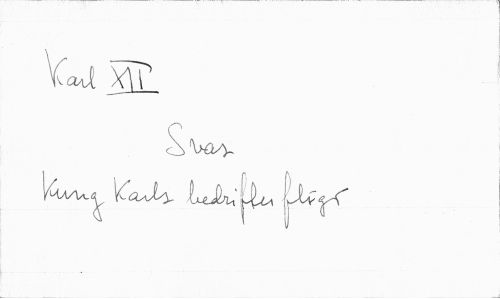 Karl XII
Svar
Kung Karls bedrifter flög